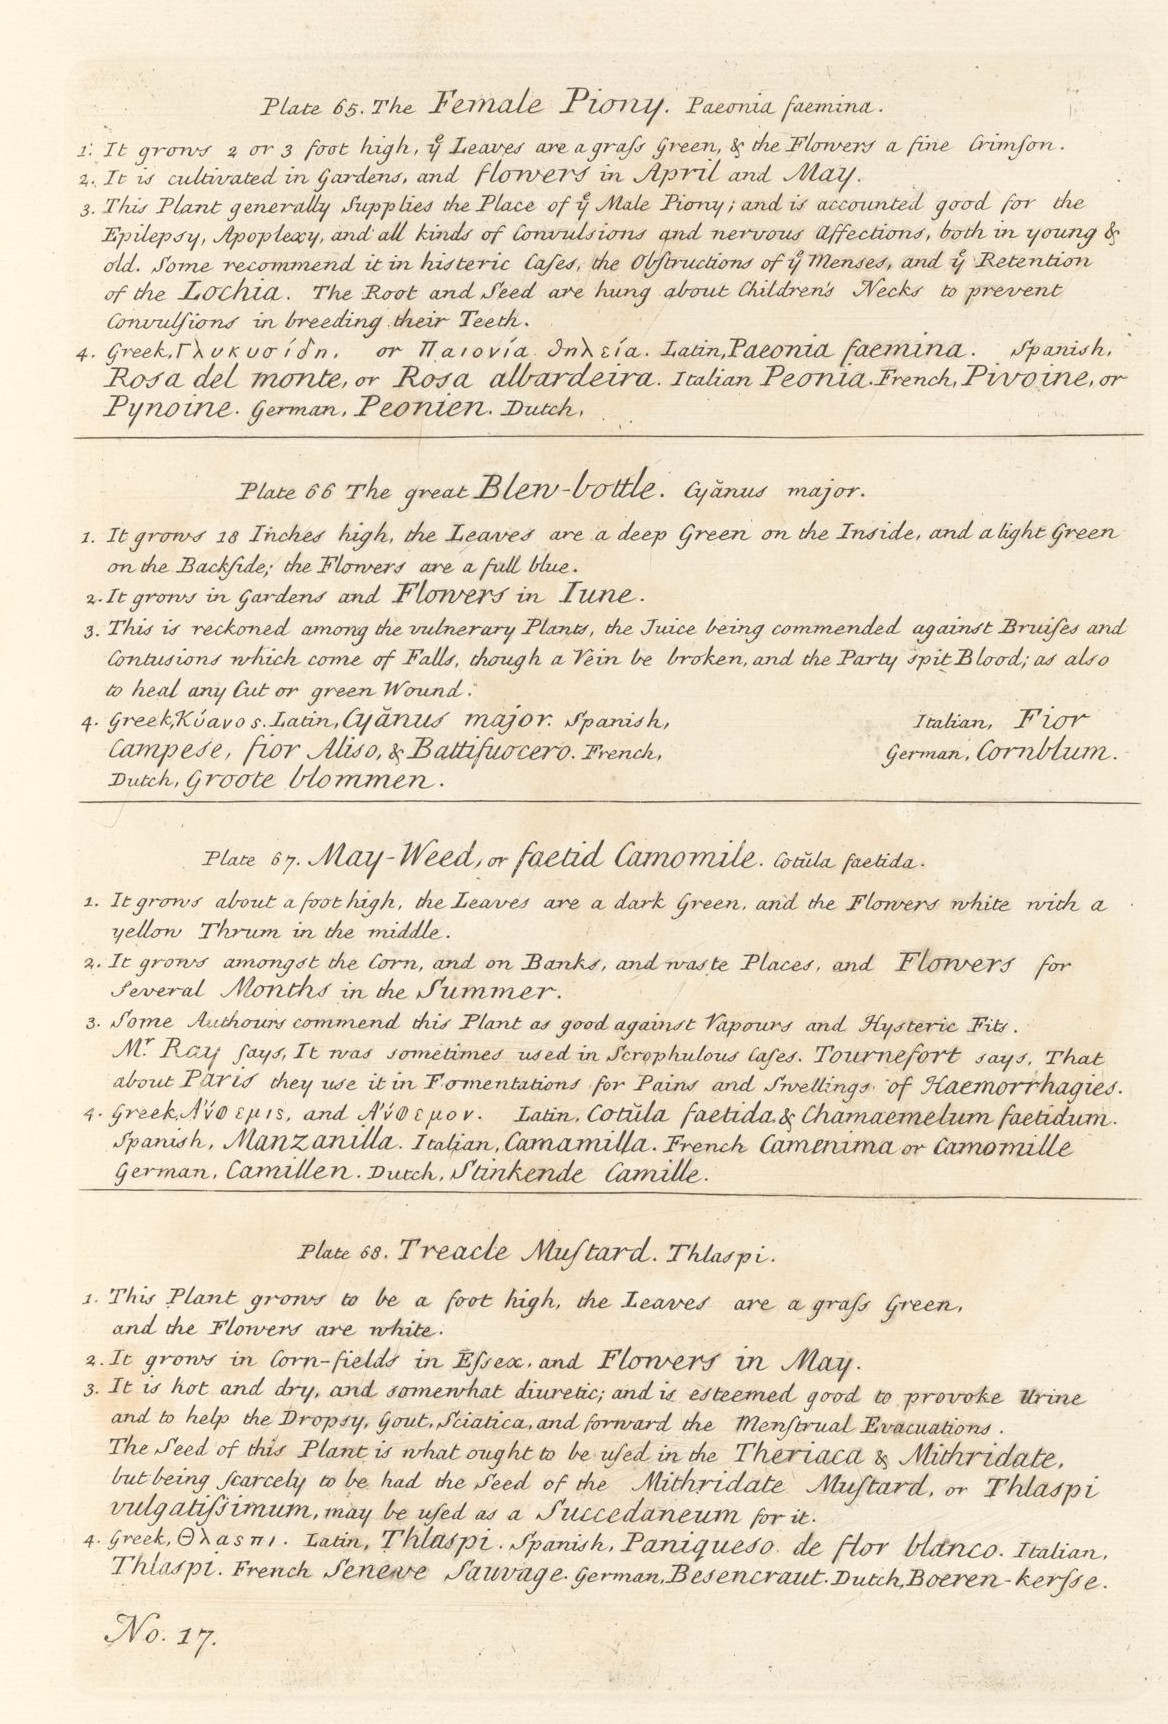 Plate 65. The Female Piony. Paeonia faemina.
1. It grows 2 or 3 foot high, yͤ Leaves are a graſs Green, & the Flowers a fine Crimſon.
2. It is cultivated in Gardens, and flowers in April and May.
3. This Plant generally Supplies the Place of yͤ Male Piony; and is accounted good for the
Epilepsy, Apoplexy, and all kinds of Convulsions and nervous Affections, both in young &
old. Some recommend it in histeric Caſes, the Obſtructions of yͤ Menses, and yͤ Retention
of the Lochia. The Root and Seed are hung about Children's Necks to prevent
Convulſions in breeding their Teeth.
4. Greek, Γλυκυσίδη, or Παιονία θηλεία. Latin, Paeonia faemina. Spanish,
Rosa del monte, or Rosa albardeira. Italian Peonia. French, Pivoine, or
Pynoine. German, Peonien. Dutch,
Plate 66 The great Blew-bottle. Cyănus major.
1. It grows 18 Inches high, the Leaves are a deep Green on the Inside, and a light Green
on the Backſide; the Flowers are a full blue.
2. It grows in Gardens and Flowers in Iune.
3. This is reckoned among the vulnerary Plants, the Juice being commended against Bruiſes and
Contusions which come of Falls, though a Vein be broken, and the Party spit Blood; as also
to heal any Cut or green Wound.
4. Greek, Κύανος. Latin, Cyănus major. Spanish, Italian, Fior
Campese, fior Aliso, & Battifuocero. French, German, Cornblum.
Dutch, Groote blommen.
Plate 67. May-Weed, or faetid Camomile. Cotŭla faetida.
1. It grows about a foot high, the Leaves are a dark Green, and the Flowers white with a
yellow Thrum in the middle.
2. It grows amongst the Corn, and on Banks, and waste Places, and Flowers for
Several Months in the Summer.
3. Some Authours commend this Plant as good against Vapours and Hysteric Fits.
Mʳ. Ray ſays, It was sometimes used in Scrophulous Caſes. Tournefort says, That
about Paris they use it in Fomentations for Pains and Swellings of Haemorrhagies.
4. Greek, Ἄνθεμις, and Ἄνθεμον. Latin, Cotŭla faetida & Chamaemelum faetidum.
Spanish, Manzanilla. Italian, Camamilla. French Camenima or Camomille
German, Camillen. Dutch, Stinkende Camille.
Plate 68. Treacle Muſtard. Thlaspi.
1. This Plant grows to be a foot high, the Leaves are a graſs Green,
and the Flowers are white.
2. It grows in Corn-fields in Eſsex, and Flowers in May.
3. It is hot and dry, and somewhat diuretic; and is esteemed good to provoke Urine
and to help the Dropsy, Gout, Sciatica, and forward the Menſtrual Evacuations.
The Seed of this Plant is what ought to be uſed in the Theriaca & Mithridate,
but being ſcarcely to be had the Seed of the Mithridate Muſtard, or Thlaspi
vulgatiſsimum, may be uſed as a Succedaneum for it.
4. Greek, Θλασπι. Latin, Thlaspi. Spanish, Paniqueso de flor blanco. Italian,
Thlaspi. French Seneve Sauvage. German, Besencraut. Dutch, Boeren-kerſse.
No. 17.